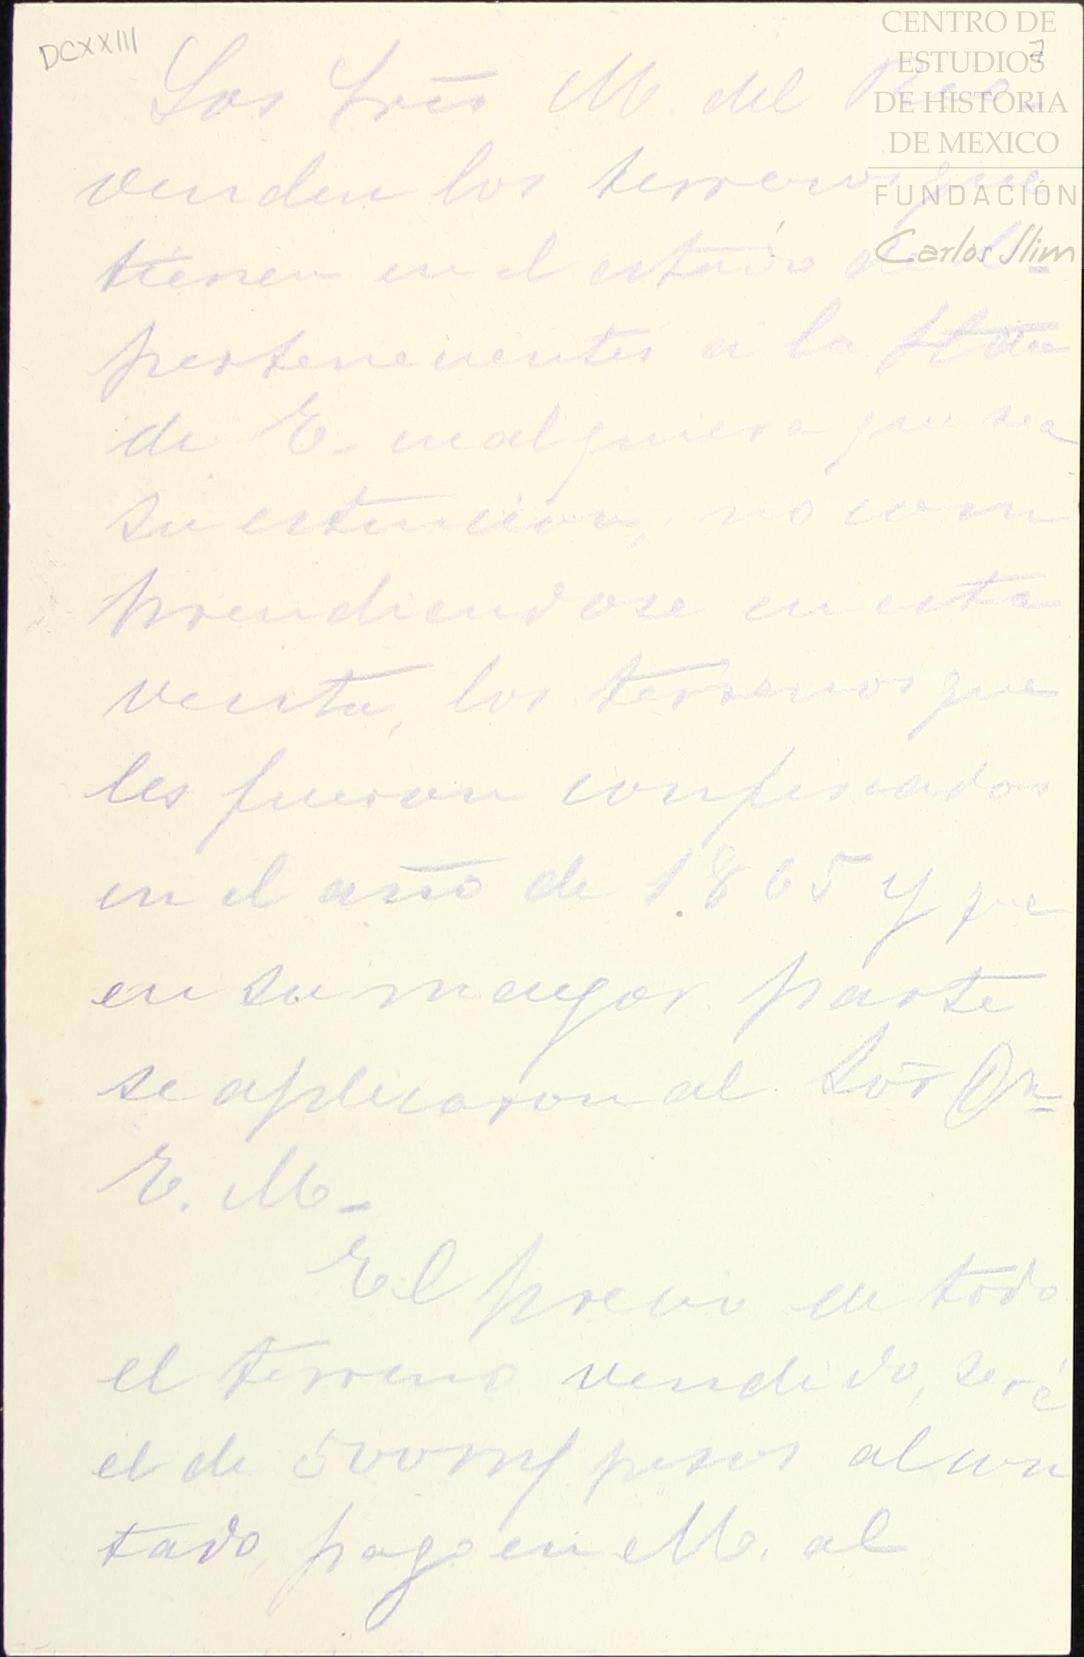 DCXXIII
Los Srēs M. del
venden los terrenos que
tienen en el estado de C-
pertenecientes a la Hda
de E- cualquiera que sea
su estencion, no com
prendiendose en esta
venta, los terrenos que
les fueron confiscados
en el año de 1865 y que
en su mayor parte
se aplicaron al Sōr Dn
E. M-
El precio en todo
el terreno vendido, será
el de 500 mil pesos al con
tado, pago en M. al
CENTRO DE
ESTUDIOS
DE HISTORIA
DE MEXICO
FUNDACIÓN
Carlos Slim